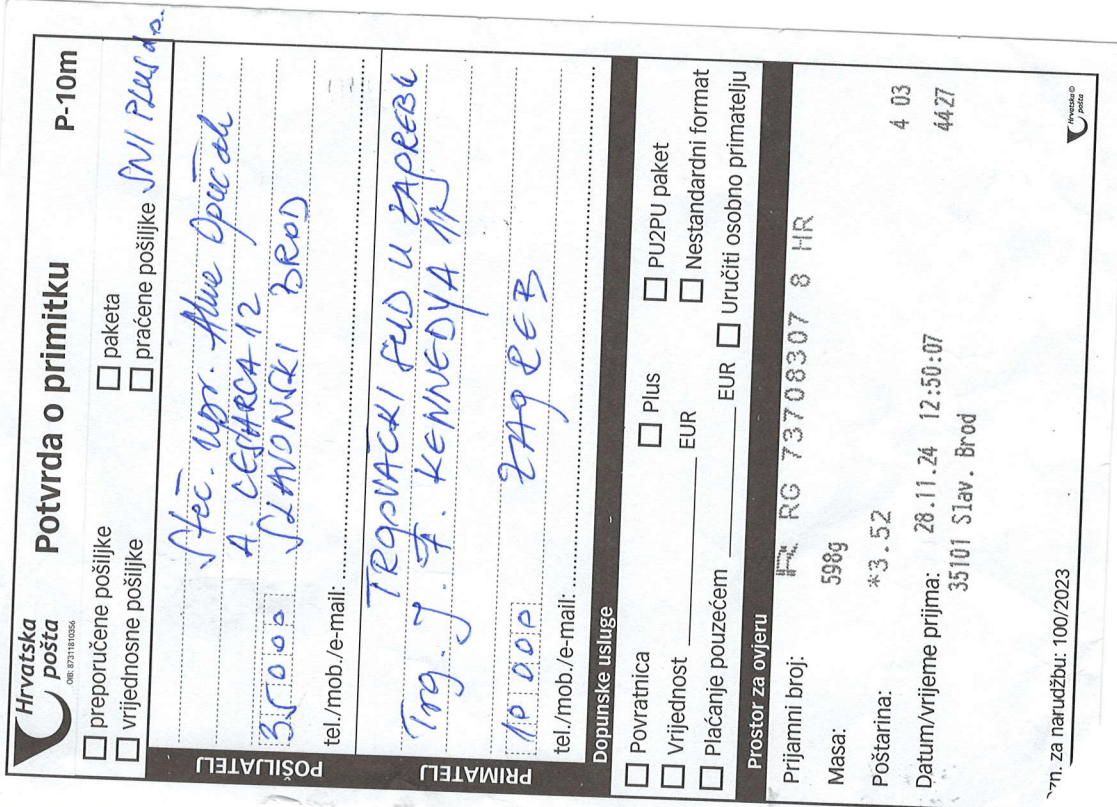 Hrvatska pošta
OIB: 87311810356
Potvrda o primitku
P-10m
preporučene pošiljke
paketa
vrijednosne pošiljke
praćene pošiljke SNI PLUS d.o.
POŠILJATELJ
Steč. upr. Opačak
A. CESARCA 12
35000 SLAVONSKI BROD
tel./mob./e-mail:
PRIMATELJ
TRGOVAČKI SUD U ZAGREBU
Trg. J. F. KENNEDYA 11
10 000 ZAGREB
tel./mob./e-mail:
Dopunske usluge
Povratnica
Plus
PU2PU paket
Vrijednost EUR
Nestandardni format
Plaćanje pouzećem EUR
Uručiti osobno primatelju
Prostor za ovjeru
Prijamni broj: R RG 73708307 8 HR
Masa: 598g
Poštarina: *3.52 4 03
Datum/vrijeme prijma: 28.11.24 12:50:07 4427
35101 Slav. Brod
zn. za narudžbu: 100/2023
Hrvatska pošta